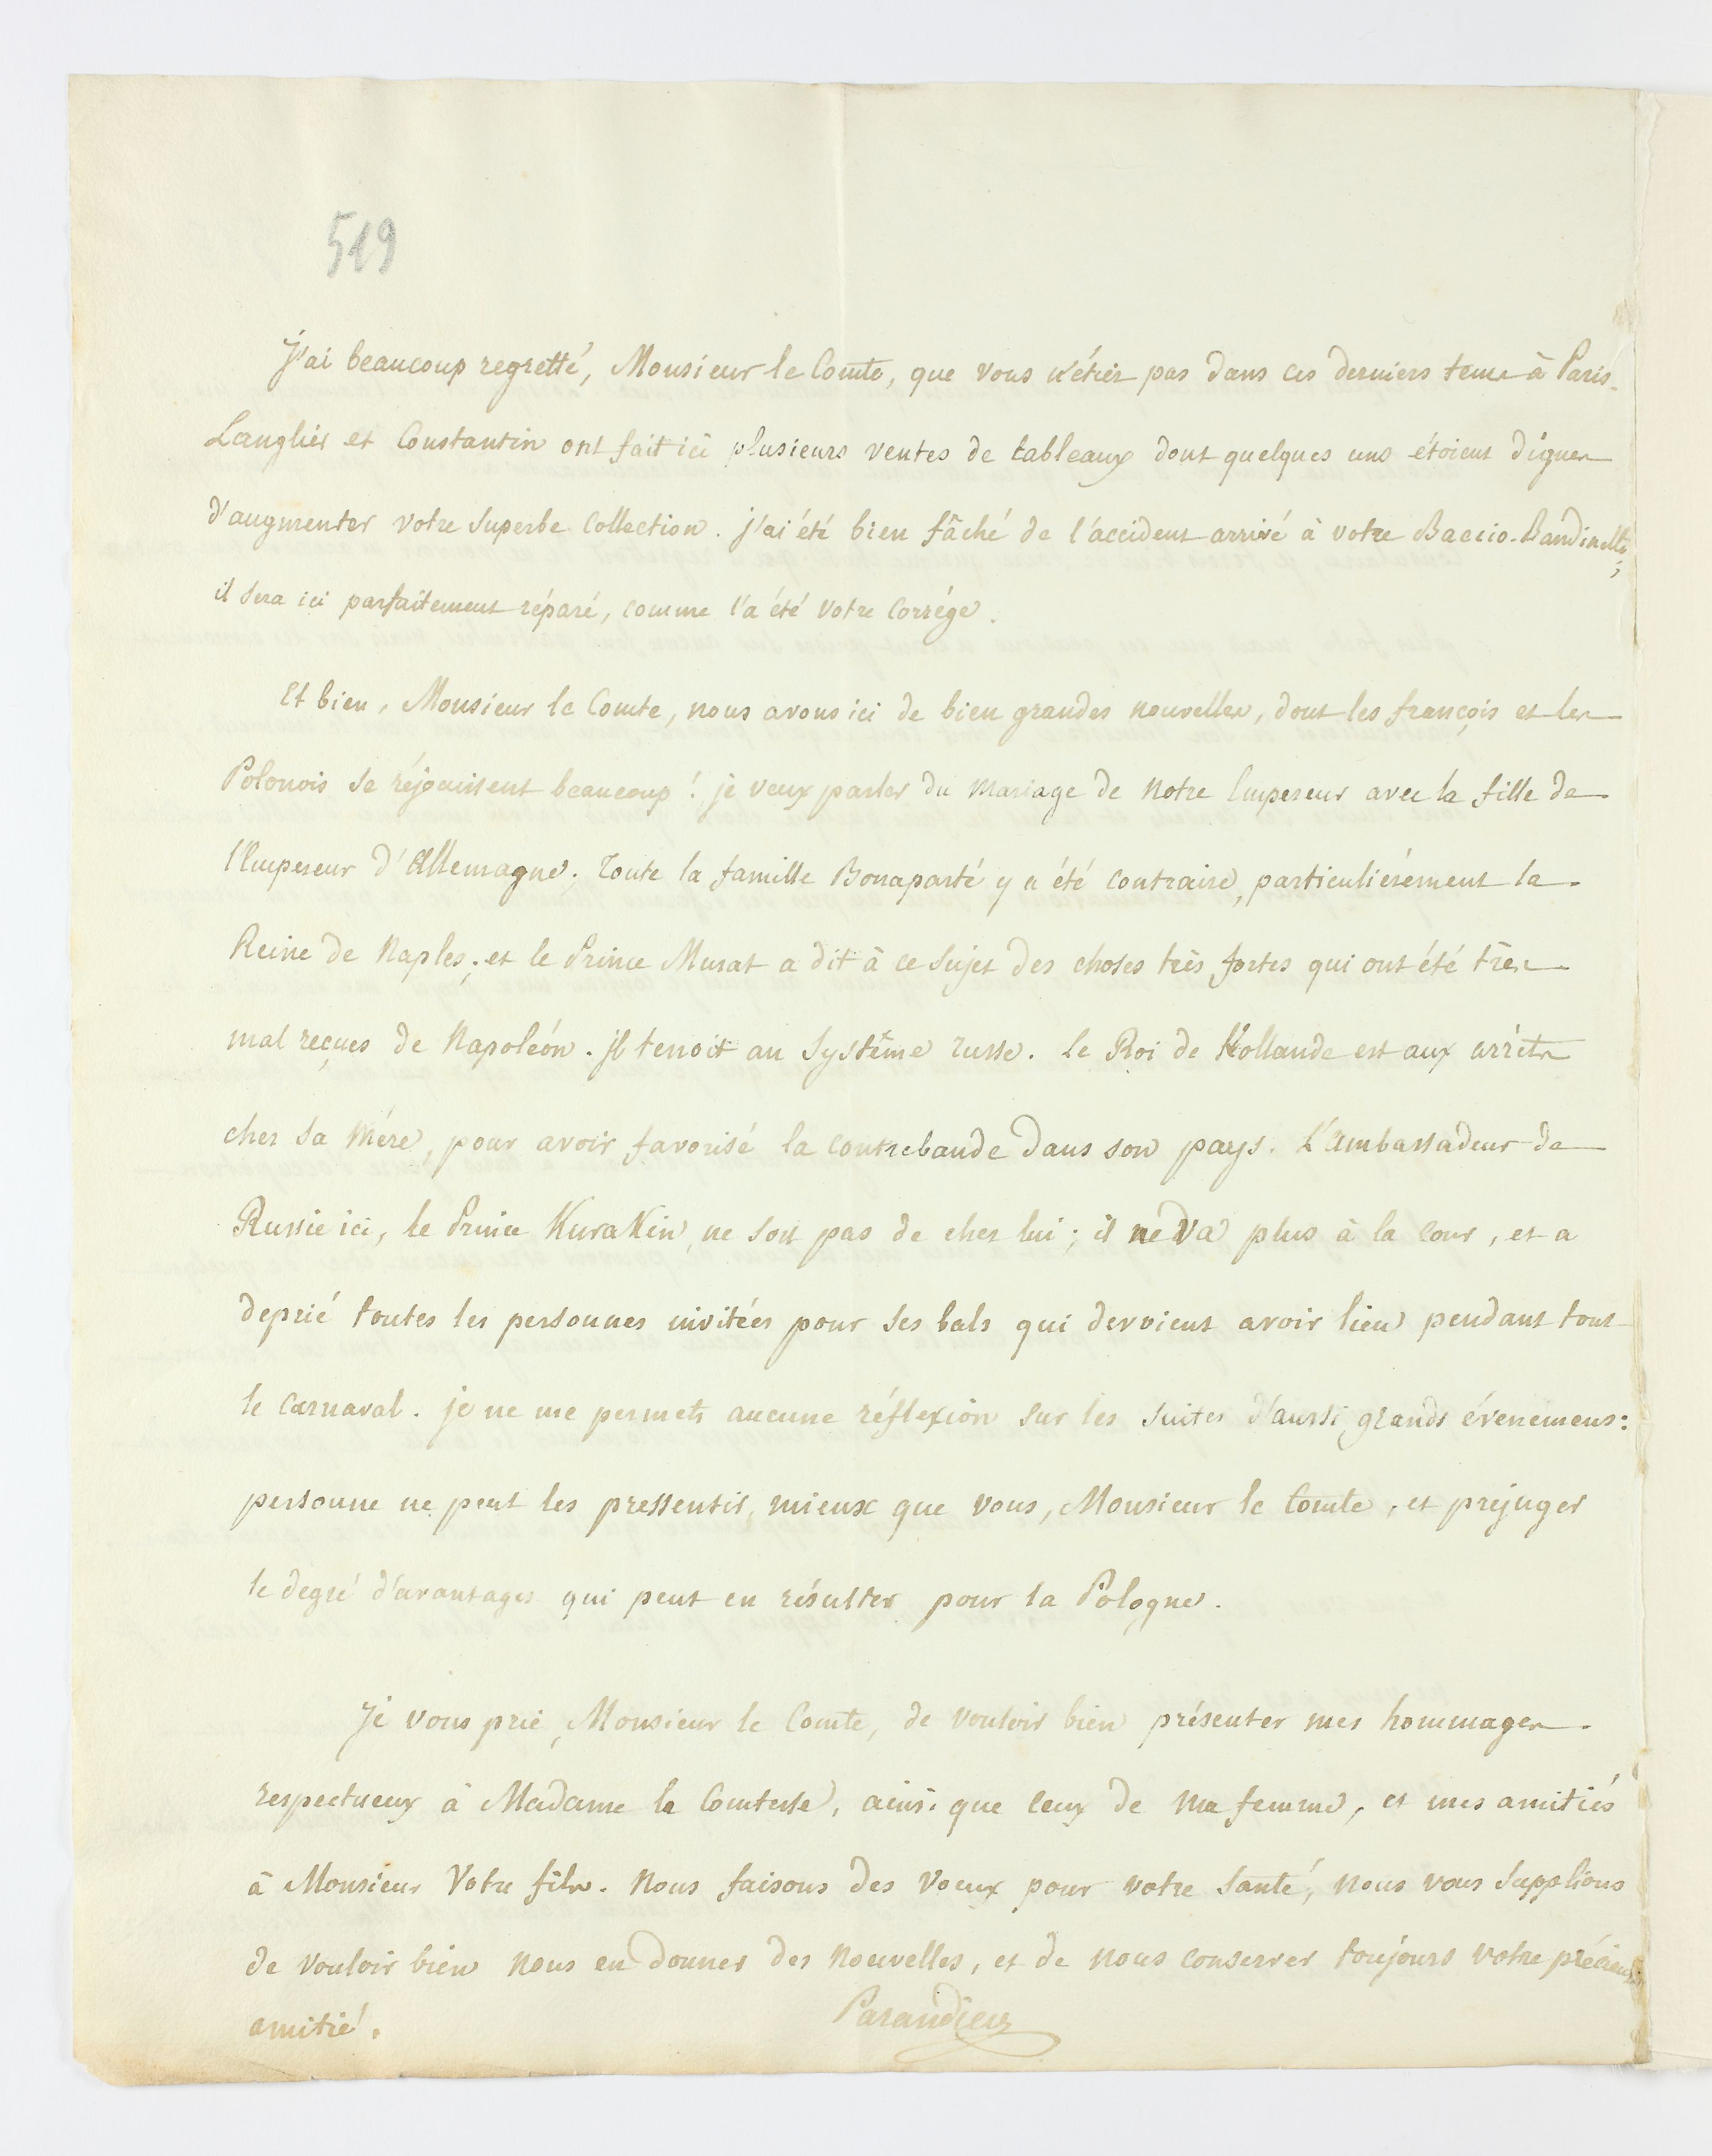 519
J'ai beaucoup regretté, Monsieur le Comte, que vous n'étiez pas dans ces derniers tems à Paris.
Langlier et Constantin ont fait ici plusieurs ventes de tableaux dont quelques uns étoient dignes
d'augmenter votre Superbe Collection. j'ai été bien fâché de l'accident arrivé à votre Baccio-Bandinelli;
il sera ici parfaitement réparé, comme l'a été votre Corrége.
Et bien, Monsieur le Comte, nous avons ici de bien grandes nouvelles, dont les françois et les
Polonois se réjouissent beaucoup! je veux parler du mariage de Notre Empereur avec la fille de
l'Empereur d'Allemagne. Toute la famille Bonaparté y a été contraire, particuliérement la
Reine de Naples; et le Prince Murat a dit à ce sujet des choses très fortes qui ont été très
mal reçues de Napoléon. Jl tenoit au Systême russe. Le Roi de Hollande est aux arrêts
chez sa Mére, pour avoir favorisé la contrebande dans son pays. L'ambassadeur de
Russie ici, le Prince Kurakin, ne sort pas de chez lui; il ne va plus à la Cour, et a
deprié toutes les personnes invitées pour ses bals qui devoient avoir lieu pendant tout
le Carnaval. je ne me permets aucune réflexion sur les suites d'aussi grands évenemens:
personne ne peut les pressentir mieux que vous, Monsieur le Comte, et préjuger
le degré d'avantages qui peut en résulter pour la Pologne.
Je vous prie, Monsieur le Comte, de vouloir bien présenter mes hommages
respectueux à Madame la Comtesse, ainsi que ceux de ma femme, et mes amitiés
à Monsieur Votre fils. Nous faisons des voeux pour votre Santé, nous vous supplions
de vouloir bien nous en donner des nouvelles, et de nous conserver toujours votre précieuse
amitié.
Parandier